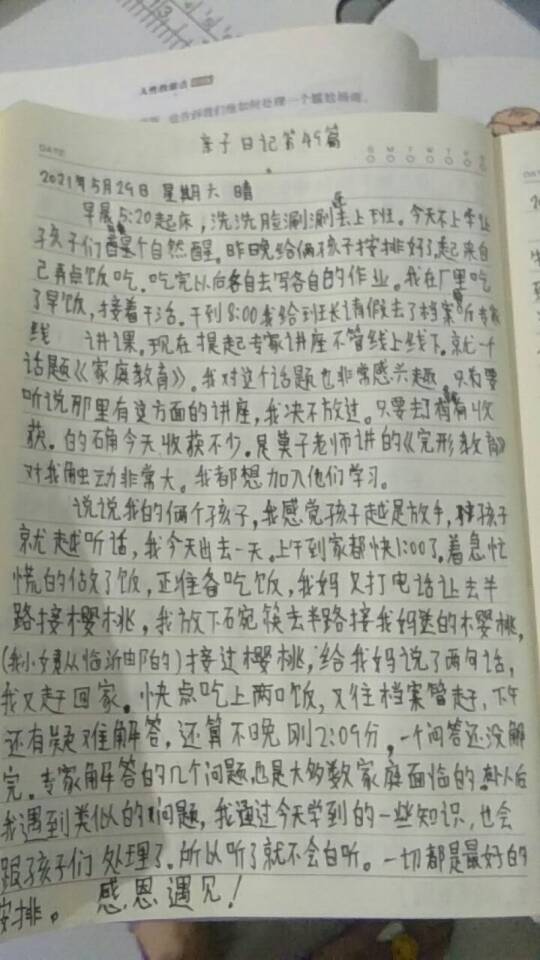 人性的弱点
也告诉我们他如何处理一个尴尬场面。
亲子日记第49篇
DATE
S M T W T F S
2021年5月29日 星期六 晴
早晨5:20起床，洗洗脸涮涮牙去上班。今天不上学让
孩子们睡个自然醒。昨晚给俩孩子按排好了，起来自
己弄点饭吃。吃完以后各自去写各自的作业。我在厂里吃
了早饭，接着干活。干到8:00我给班长请假去了档案所专家
线 讲课。现在提起专家讲座不管线上线下。就一个
话题《家庭教育》。我对这个话题也非常感兴趣，只要
听说那里有这方面的讲座，我决不放过。只要去了都有收
获。的确今天收获不少。是莫子老师讲的《完形教育》
对我触动非常大。我都想加入他们学习。
说说我的俩个孩子，我感觉孩子越是放手，孩子
就越听话，我今天出去一天。上午到家都快1:00了。着急忙
慌的做了饭，正准备吃饭，我妈又打电话让去半
路接樱桃，我放下碗筷去半路接我妈送的樱桃，
(我小姨从临沂邮的)接过樱桃，给我妈说了两句话，
我又赶回家。快点吃上两口饭，又往档案管赶，下午
还有疑难解答，还算不晚刚2:09分，一个问答还没解
完。专家解答的几个问题，也是大多数家庭面临的。以后
我遇到类似的问题，我通过今天学到的一些知识，也会
跟孩子们处理了。所以听了就不会白听。一切都是最好的
安排。 感恩遇见！